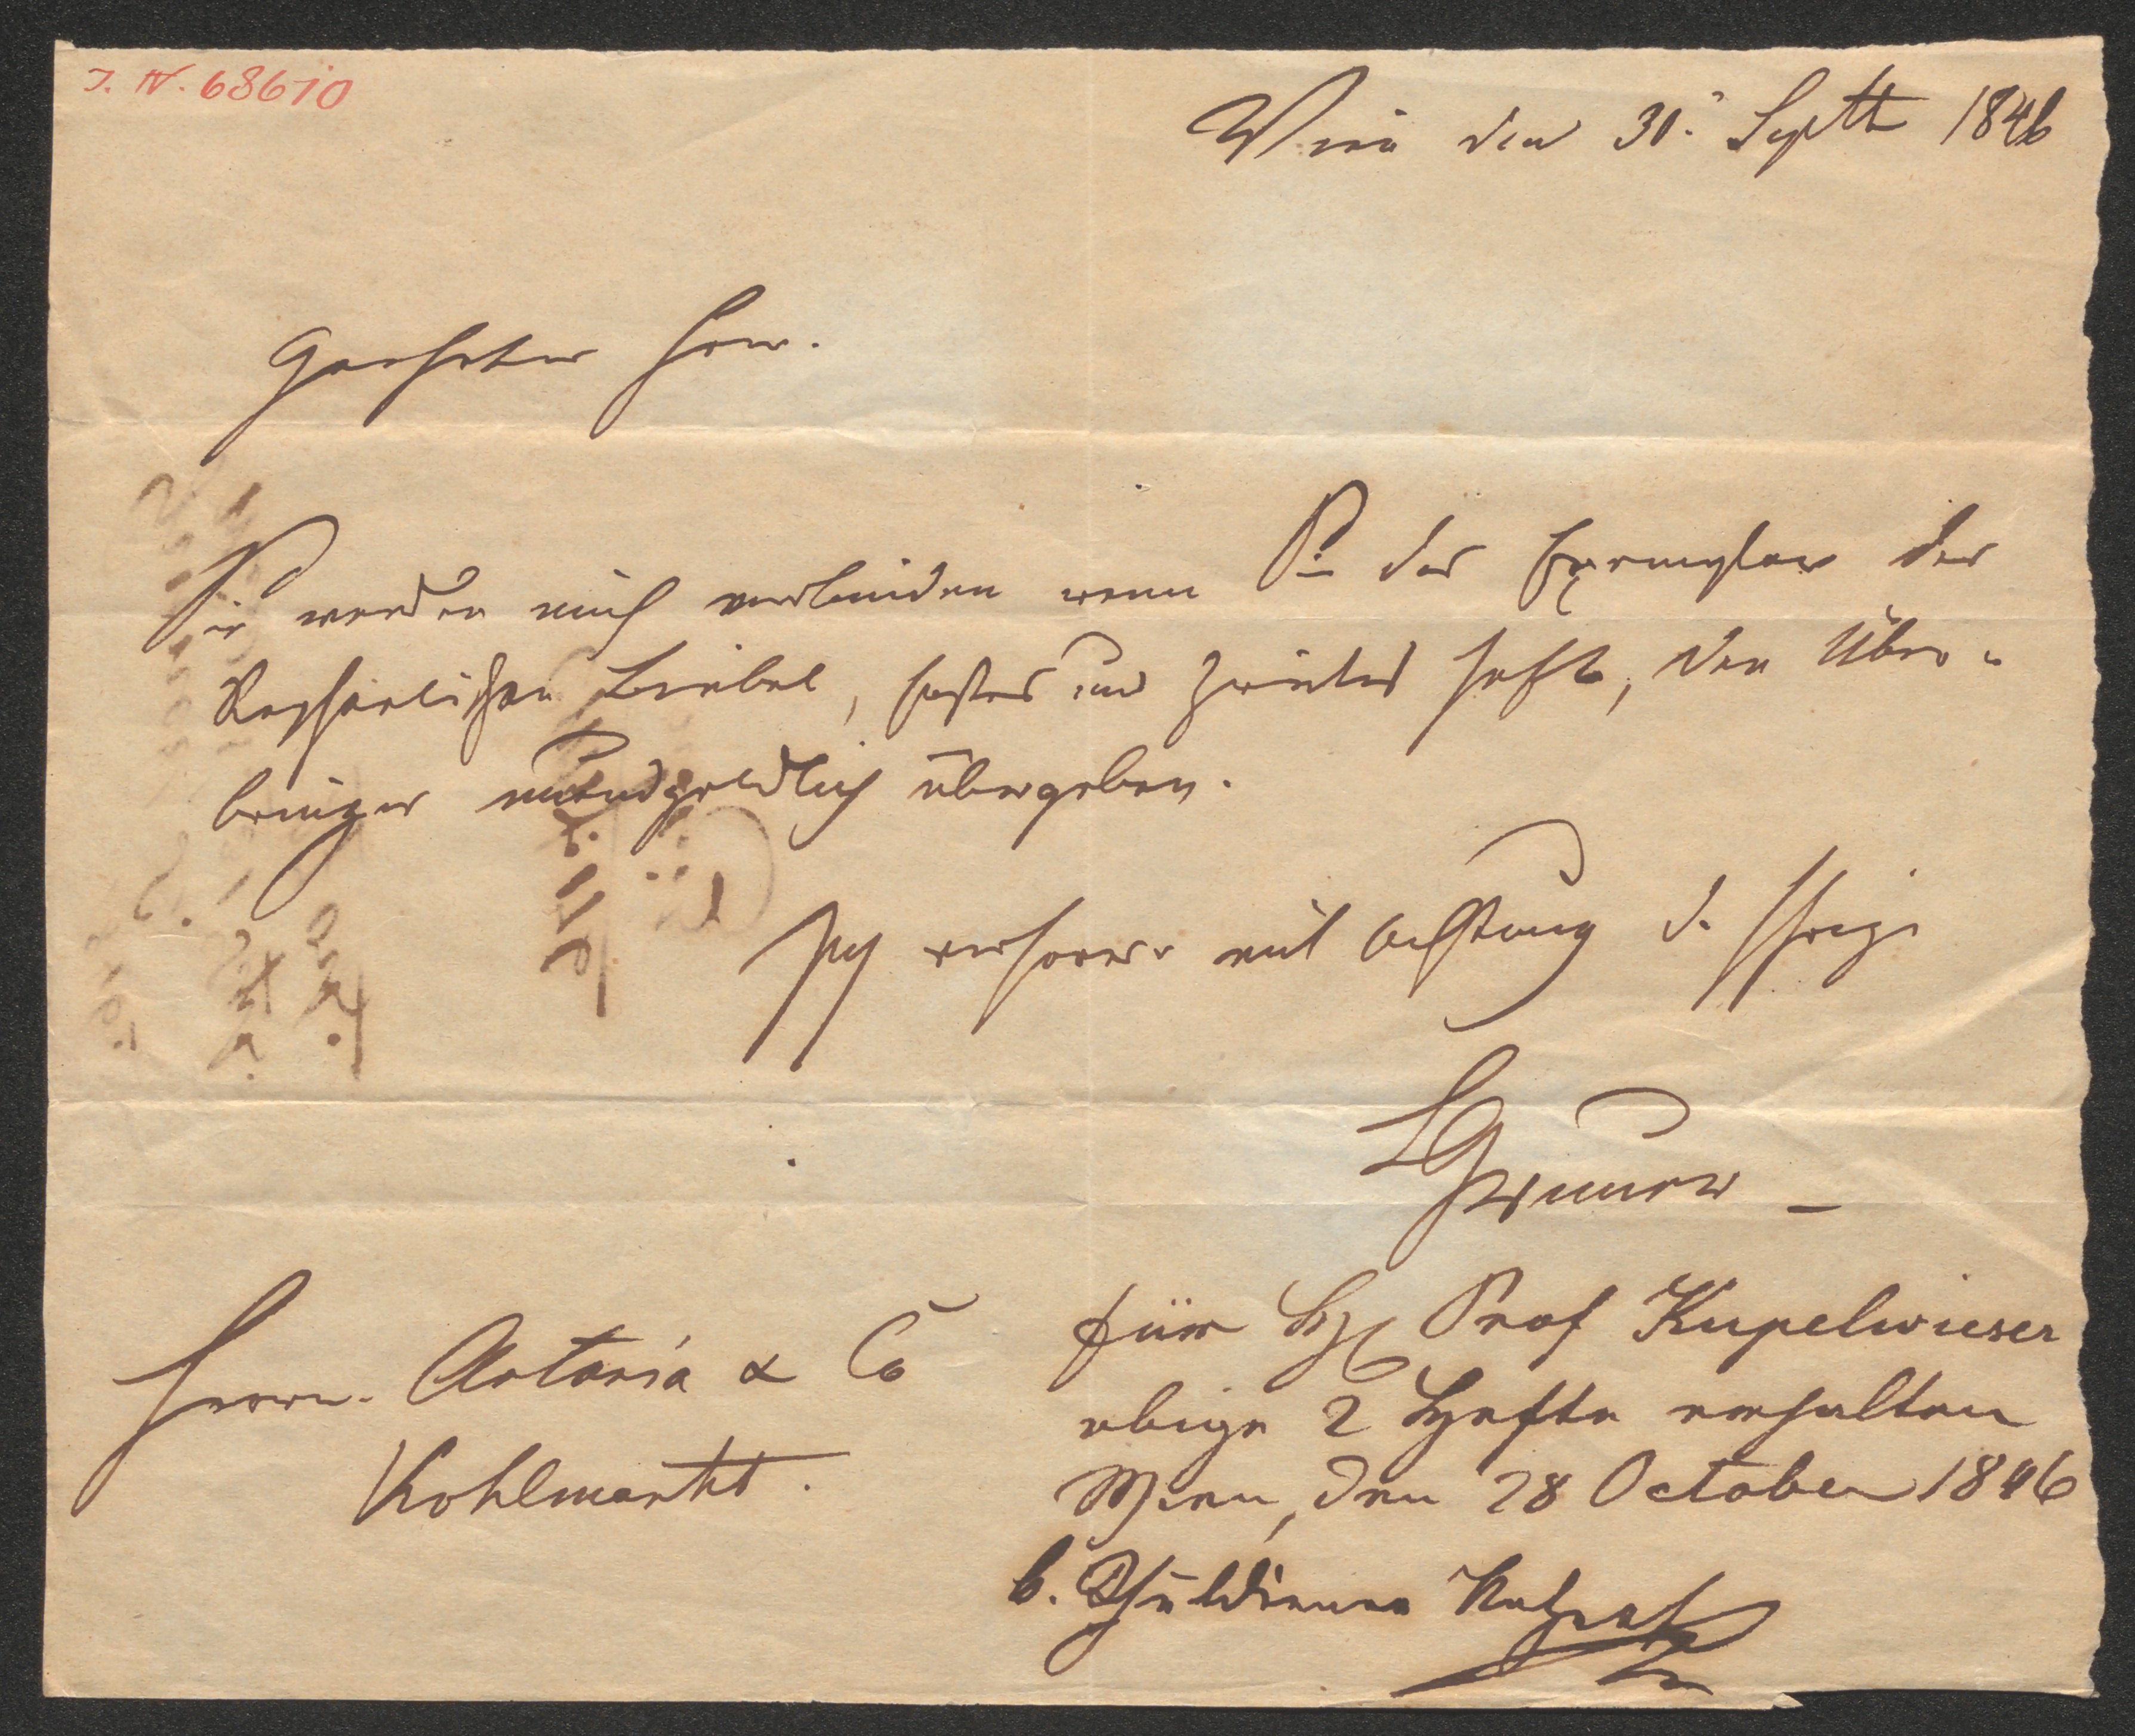 I. N. 68610
Wien den 30. Septb 1846
Geehrter Herr.
Sie werden mich verbinden wenn Sie das Exemplar der
Raphaelischen Biebel, erstes und zweites Heft, den Über-
bringer unendgeldlich übergeben.
Ich verharre mit Achtung d. Ihrige
LGruner
Herrn. Artaria & Co
Kohlmarkt.
für H Prof Kupelwieser
obige 2 Hefte erhalten
Wien, den 28 October 1846
b. Schuldiener